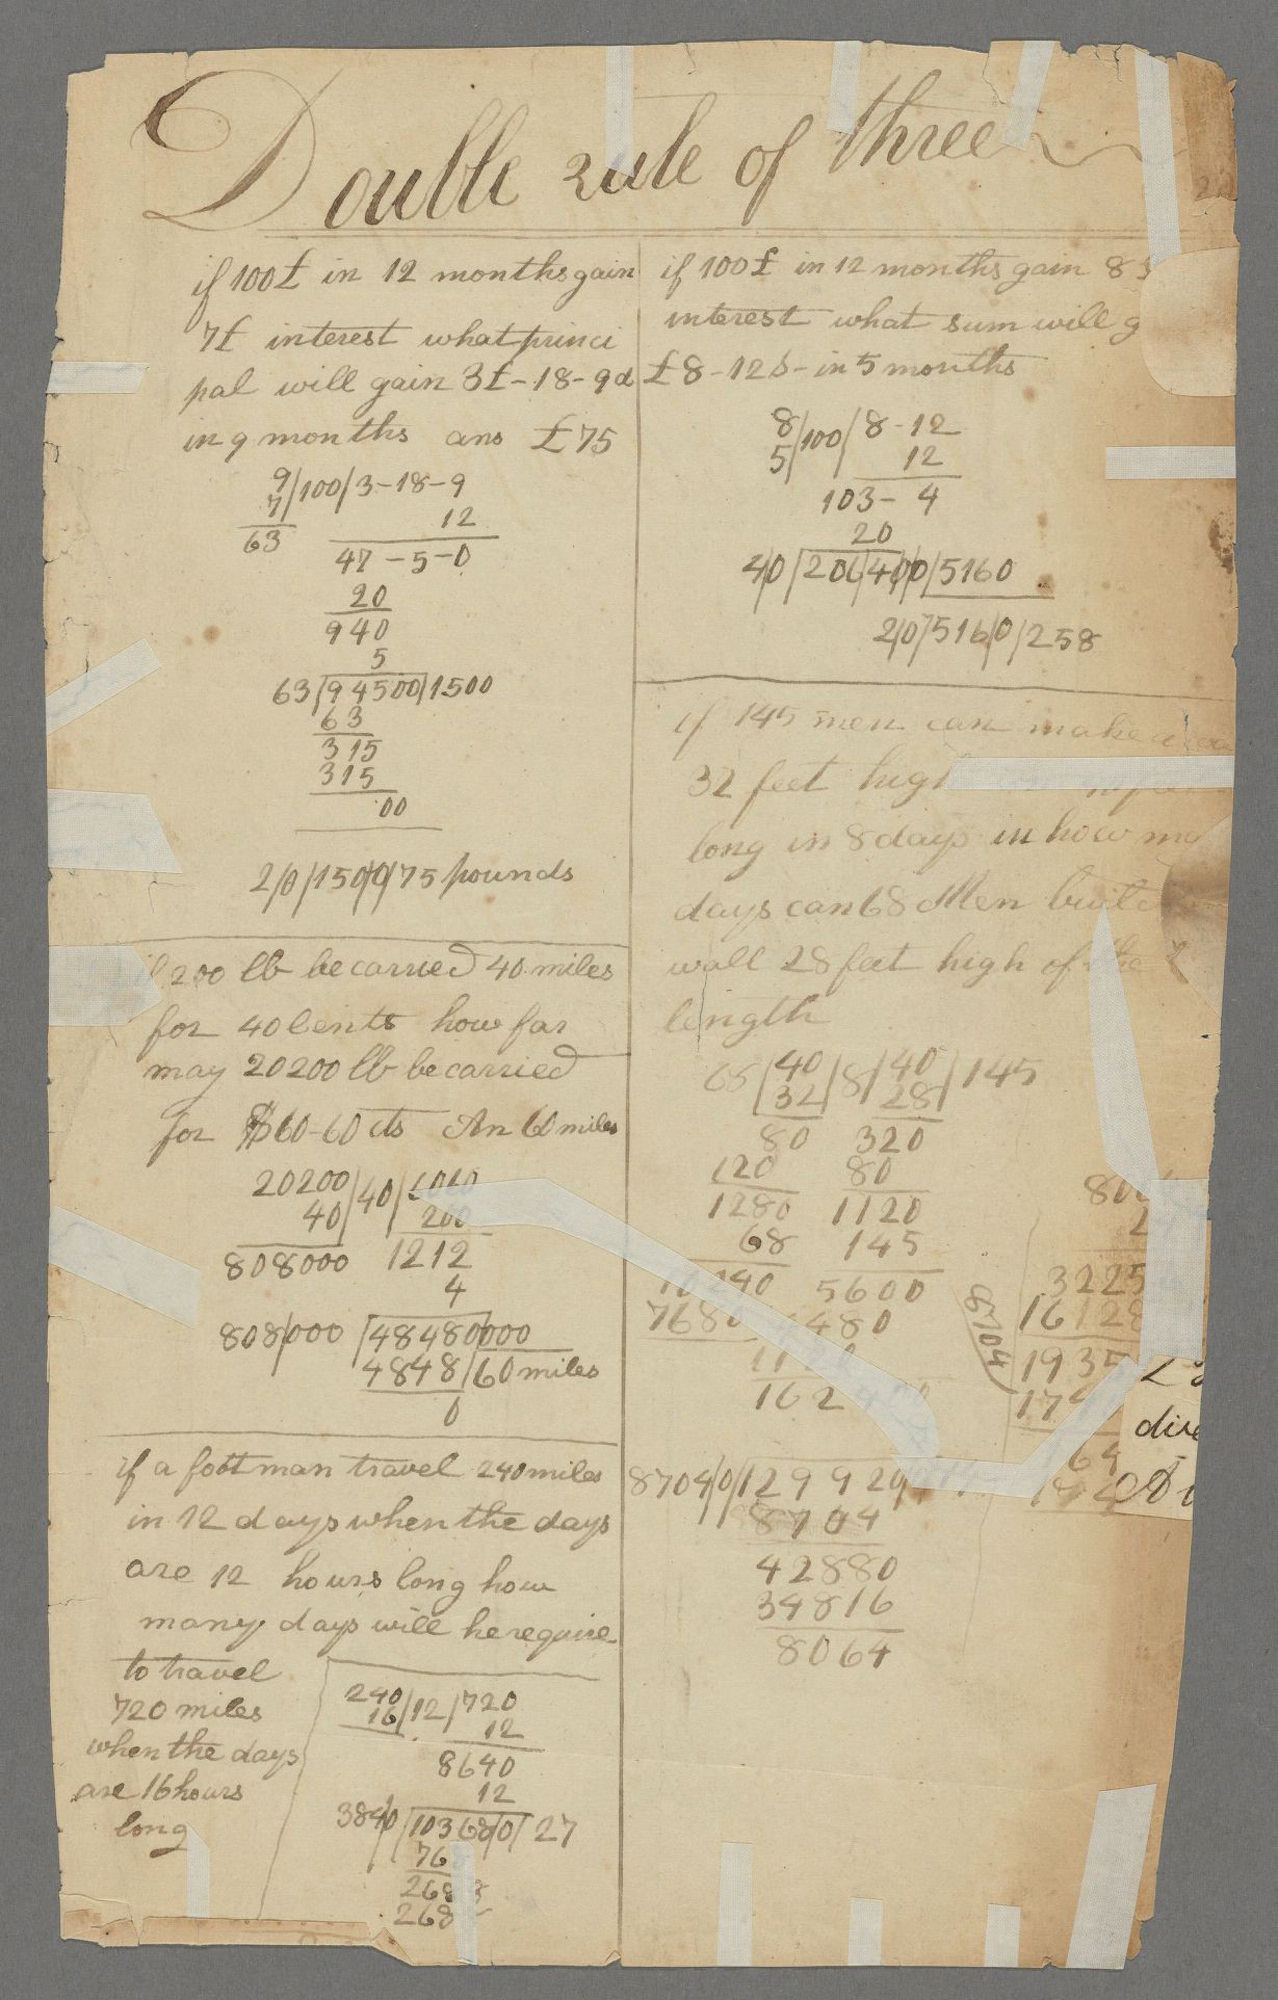 Double rule of three
if 100£ in 12 months gain
7£ interest what princi
pal will gain 3£-18-9d
in 9 months ans £75
9/100/3-18-9
7/ 12
63 47-5-0
20
940
5
63/94500/1500
63
315
315
00
2/0/150/0/75 pounds
200 lb be carried 40 miles
for 40 Cents how far
may 20200 lb be carried
for $60-60 cts An 60 miles
20200/40/6060
40/ 200
808000 1212
4
808/000 /48480/000
4848/60 miles
0
if a foot man travel 240 miles
in 12 days when the days
are 12 hours long how
many days will he require
to travel
720 miles
when the days
are 16 hours
long
240/12/720
16/ 12
8640
12
384/0 /10368/0/ 27
76
268
268
if 100£ in 12 months gain 8
interest what sum will g
£8-12s-in 5 months
8/100/8-12
5/ 12
103-4
20
4/0/206/4/00/5160
2/0/516/0/258
if 145 men can make a
32 feet high
long in 8 days in how
days can 68 Men
wall 28 feet high of the
length
68/40/8/40/145
32/ 28
80 320
120 80
1280 1120
68 145
10240 5600
7680 4480
1120
162400
8704/0/129920/
8704
42880
34816
8064
8704
3225
16128
1935
17
64
dive